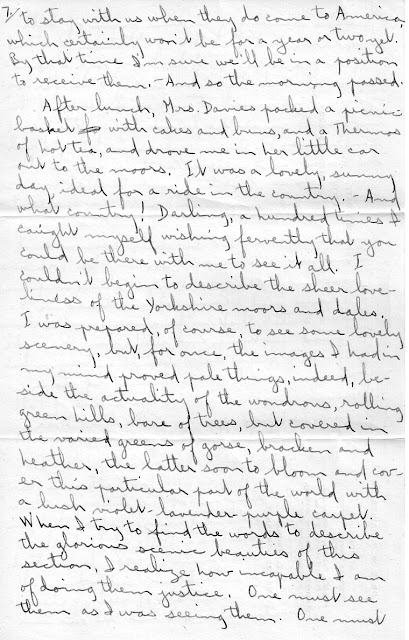 7/ to stay with us when they do come to America,
which certainly won't be for a year or two yet.
By that time I'm sure we'll be in a position
to receive them. - And so the morning passed.
After lunch, Mrs. Davies packed a picnic
basket with cakes and buns, and a Thermos
of hot tea, and drove me in her little car
out to the moors. It was a lovely, sunny
day, ideal for a ride in the country. - And
what country! Darling, a hundred times I
caught myself wishing fervently that you
could be there with me to see it all. I
couldn't begin to describe the sheer love-
liness of the Yorkshire moors and dales.
I was prepared, of course, to see some lovely
scenery, but, for once, the images I had in
my mind proved pale things, indeed, be-
side the actuality of the wondrous, rolling
green hills, bare of trees, but covered in
the varied greens of gorse, bracken and
heather, the latter soon to bloom and cov-
er this particular part of the world with
a lush violet-lavender-purple carpet.
When I try to find the words to describe
the glorious scenic beauties of this
section, I realize how incapable I am
of doing them justice. One must see
them as I was seeing them. One must